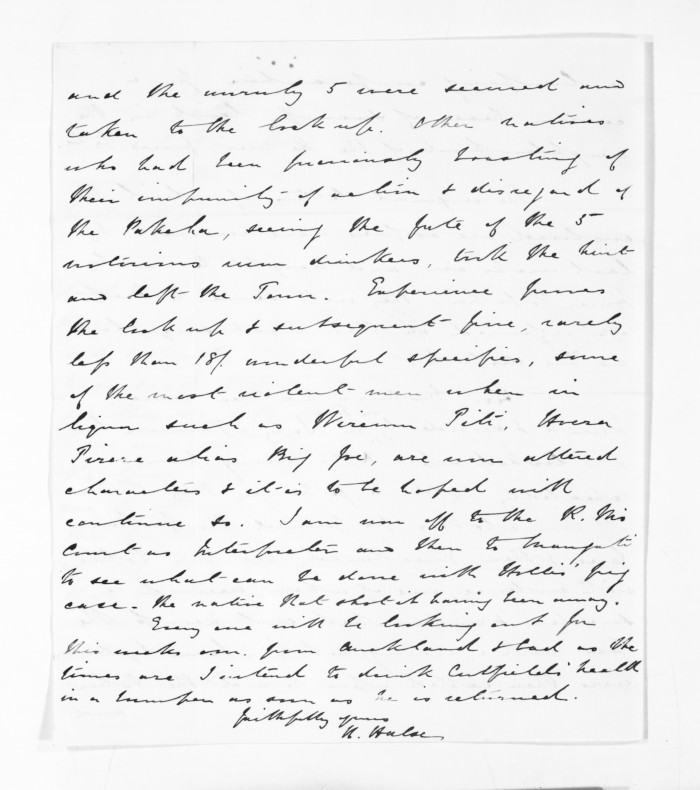 and the unruly 5 were secured and
taken to the lock up. Other natives
who had been previously boasting of
their impunity of action & disregard of
the Pakeha, seeing the fate of the 5
notorious rum drinkers, took the hint
and left the Town. Experience proves
the lock up & subsequent fine, rarely
less than 18/. wonderful specifics, some
of the most violent men when in
liquor such as Wiremu Piti, Hoera
Pirere alias Big Joe, are now altered
characters & it is to be hoped will
continue so. I am now off to the R. Mis
Court as Interpreter and then to
to see what can be done with Hollis' pig
case - the native that shot it having been away.
Every one will be looking out for
this weeks from Auckland & bad as the
times are I intend to drink Cutfield's health
in a bumper as soon as he is returned.
faithfully yours
H. Halse